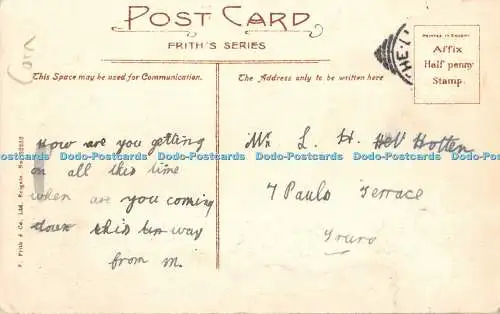 POST CARD
FRITH'S SERIES
This Space may be used for Communication.
The Address only to be written here
PRINTED IN
Affix
Half penny
Stamp.
How are you getting
on all this time
when are you coming
down this way
from M.
Mr L. H. Hotten
7 Pauls Terrace
Truro
F. Frith & Co. Ltd. Reigate.
Dodo-Postcards Dodo-Postcards Dodo-Postcards Dodo-Postcards Dodo-Postcards Dodo-Postcards